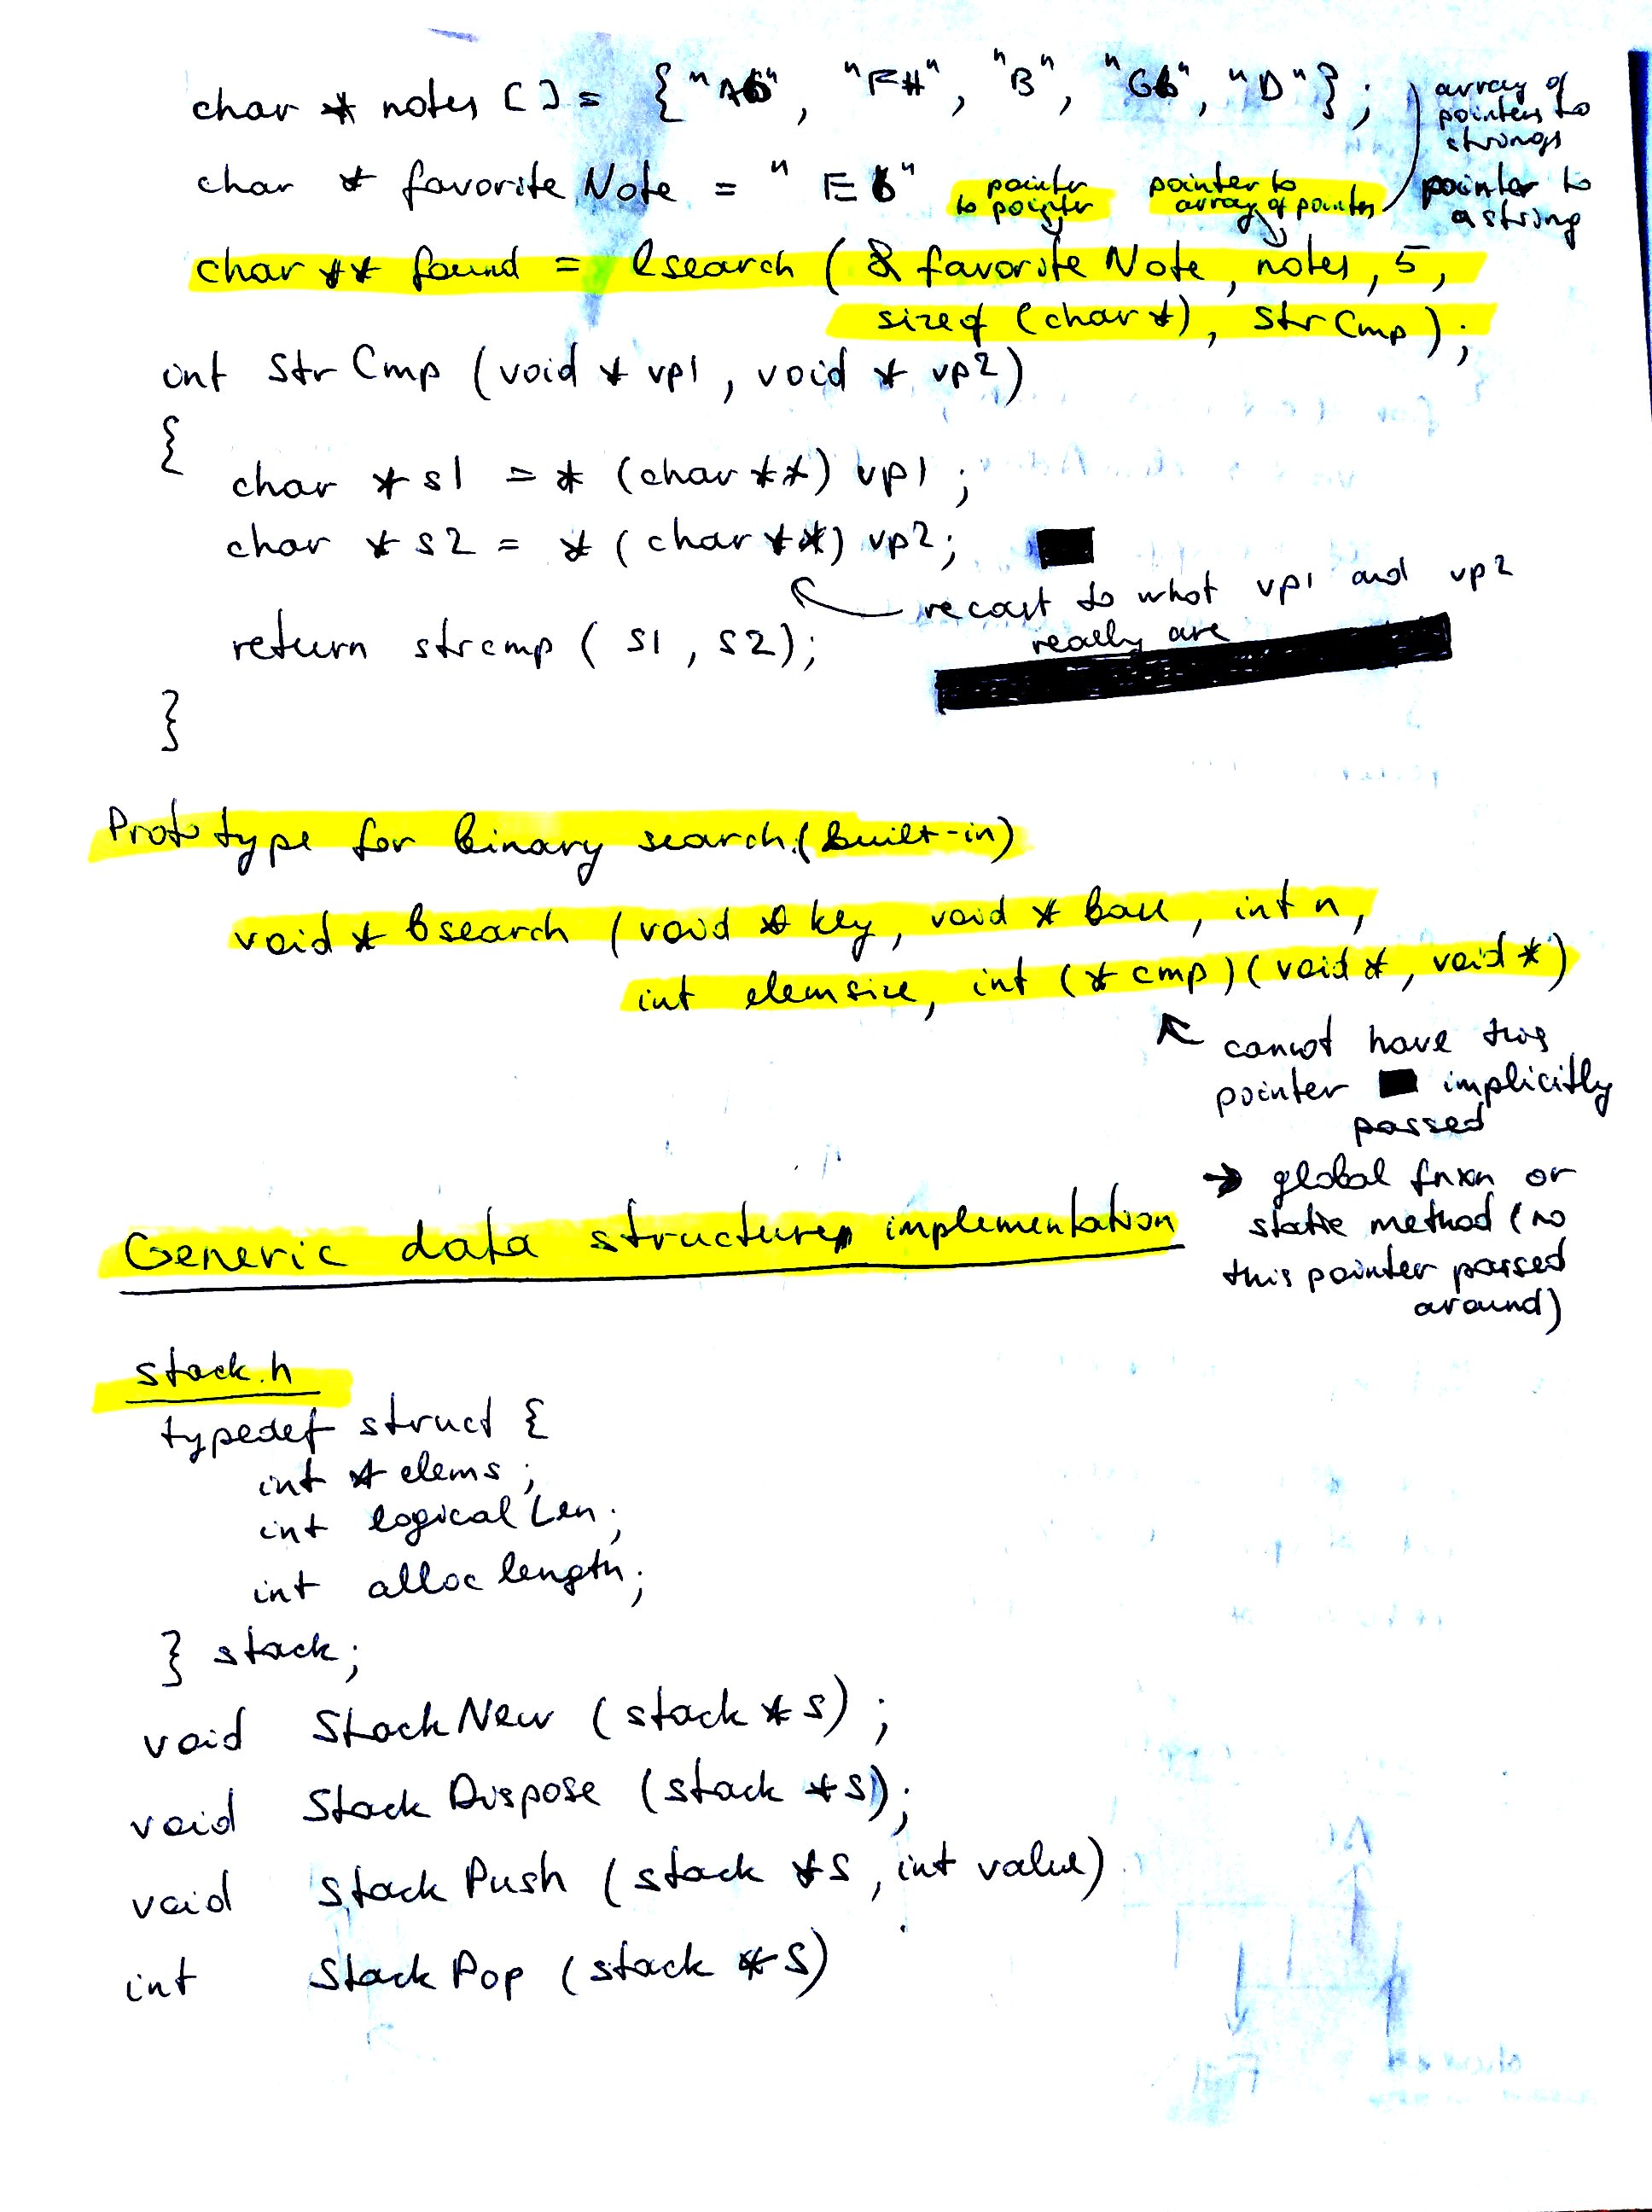 char * notes [ ] = { "Ab", "F#", "B", "Gb", "D" };
array of
pointers to
strings
char * favorite Note = " Eb"
pointer
to pointer
pointer to
array of pointers
pointer to
a string
char ** found = lsearch ( & favorite Note, notes, 5,
sizeof (char *), Str Cmp );
int Str Cmp (void * vp1, void * vp2)
{
char * s1 = * (char **) vp1 ;
char * s2 = * ( char **) vp2;
recast to what vp1 and vp2
really are
return strcmp ( s1, s2);
}
Prototype for binary search (built-in)
void * bsearch (void * key, void * base, int n,
int elemsize, int (* cmp)(void *, void *)
cannot have this
pointer implicitly
passed
→ global fnxn or
static method (no
this pointer passed
around)
Generic data structures implementation
stack.h
typedef struct {
int * elems ;
int logical Len ;
int alloc length ;
} stack;
void Stack New ( stack * s) ;
void Stack Dispose (stack * s);
void Stack Push ( stack * s, int value)
int Stack Pop (stack * s)